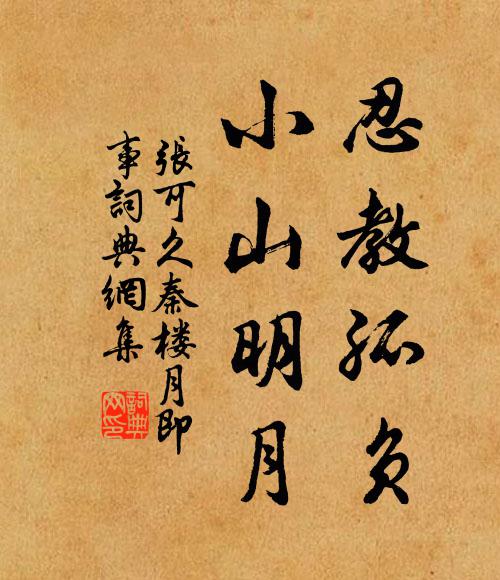 忍教孤负
小山明月
張可久秦楼月即
事詞典網集
詞典
网印